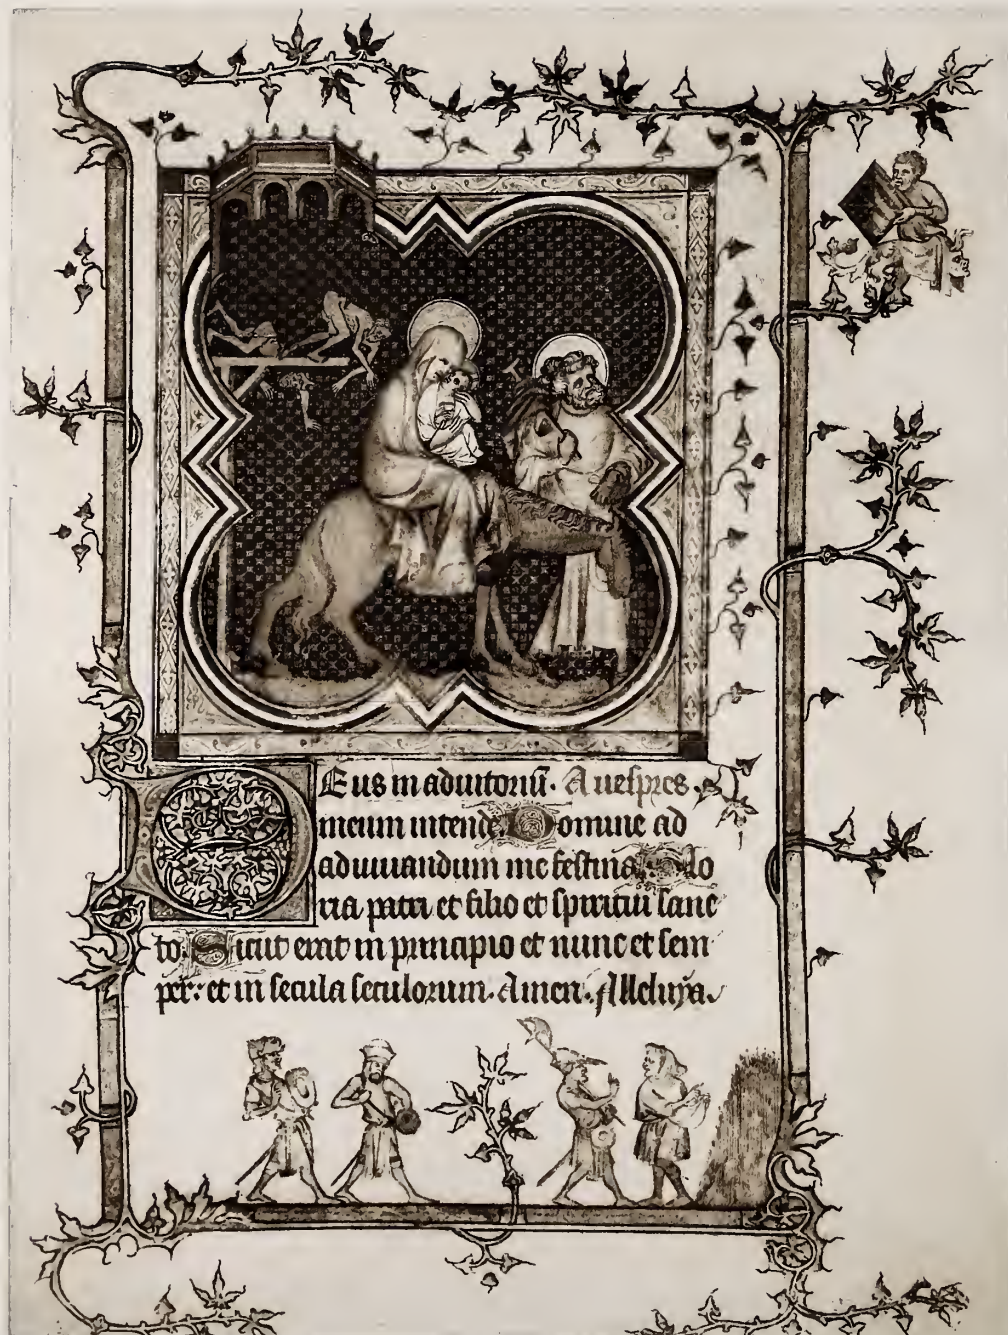 Deus in adiutoriū. A uespres.
meum intende. Domine ad
adiuuandum me festina. Glo
ria patri et filio et spiritui sanc
to. Sicut erat in principio et nunc et sem
per: et in secula seculorum. Amen. Alleluya.